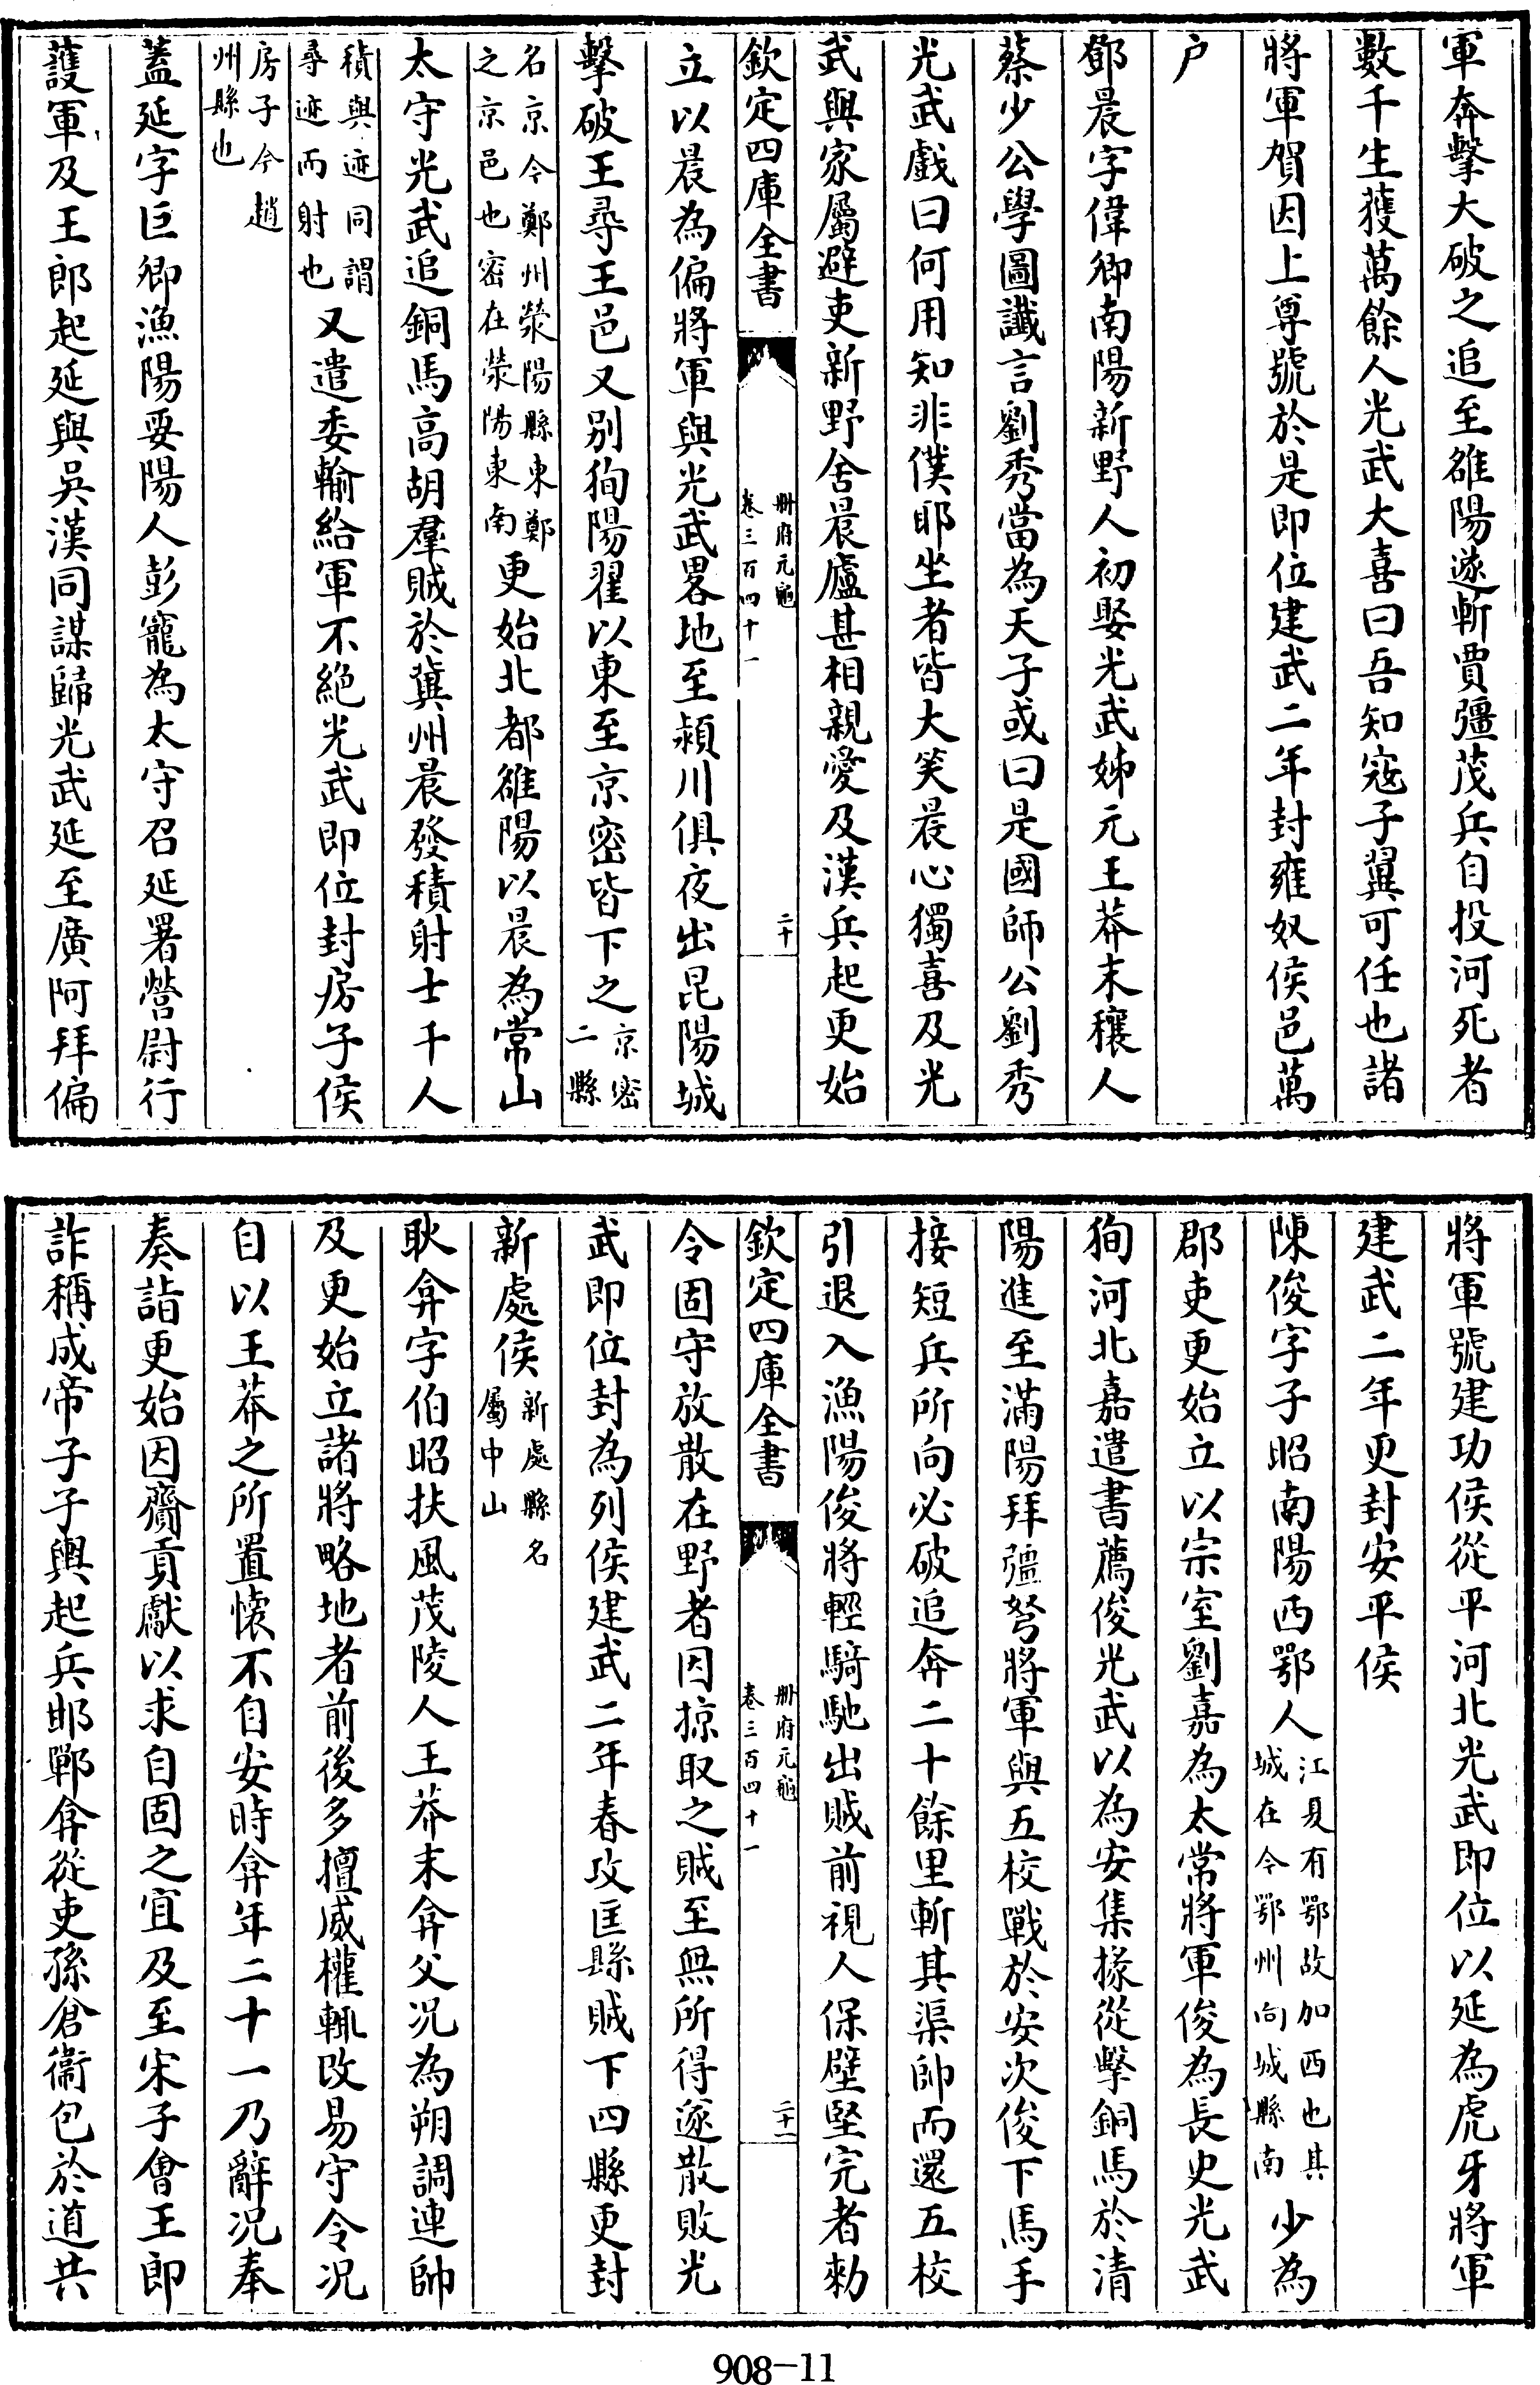 軍奔擊大破之追至雒陽遂斬賈彊茂兵自投河死者
數千生獲萬餘人光武大喜曰吾知寇子翼可任也諸
將軍賀因上尊號於是即位建武二年封雍奴侯邑萬
户
鄧晨字偉卿南陽新野人初娶光武姊元王莽末穰人
蔡少公學圖讖言劉秀當為天子或曰是國師公劉秀
光武戲曰何用知非僕耶坐者皆大笑晨心獨喜及光
武與家屬避吏新野舍晨廬甚相親愛及漢兵起更始
欽定四庫全書
冊府元龜
卷三百四十一
二十
立以晨為偏將軍與光武畧地至潁川俱夜出昆陽城
擊破王尋王邑又别狥陽翟以東至京密皆下之京密二縣
名京今鄭州滎陽縣東鄭之京邑也密在滎陽東南更始北都雒陽以晨為常山
太守光武追銅馬高胡羣賊於冀州晨發積射士千人
積與迹同謂尋迹而射也又遣委輸給軍不絕光武即位封房子侯
房子今趙州縣也
蓋延字巨卿漁陽要陽人彭寵為太守召延署營尉行
護軍及王郎起延與吳漢同謀歸光武延至廣阿拜偏
將軍號建功侯從平河北光武即位以延為虎牙將軍
建武二年更封安平侯
陳俊字子昭南陽西鄂人江夏有鄂故加西也其城在今鄂州向城縣南少為
郡吏更始立以宗室劉嘉為太常將軍俊為長史光武
狥河北嘉遣書薦俊光武以為安集掾從擊銅馬於清
陽進至滿陽拜彊弩將軍與五校戰於安次俊下馬手
接短兵所向必破追奔二十餘里斬其渠帥而還五校
引退入漁陽俊將輕騎馳出賊前視人保壁堅完者勑
欽定四庫全書
冊府元龜
卷三百四十一
二十一
令固守放散在野者因掠取之賊至無所得遂散敗光
武即位封為列侯建武二年春攻匡縣賊下四縣更封
新處侯新處縣名屬中山
耿弇字伯昭扶風茂陵人王莽末弇父况為朔調連帥
及更始立諸將略地者前後多擅威權輒改易守令况
自以王莽之所置懐不自安時弇年二十一乃辭况奉
奏詣更始因齎貢獻以求自固之宜及至宋子會王郎
詐稱成帝子子輿起兵邯鄲弇從吏孫倉衞包於道共
908-11